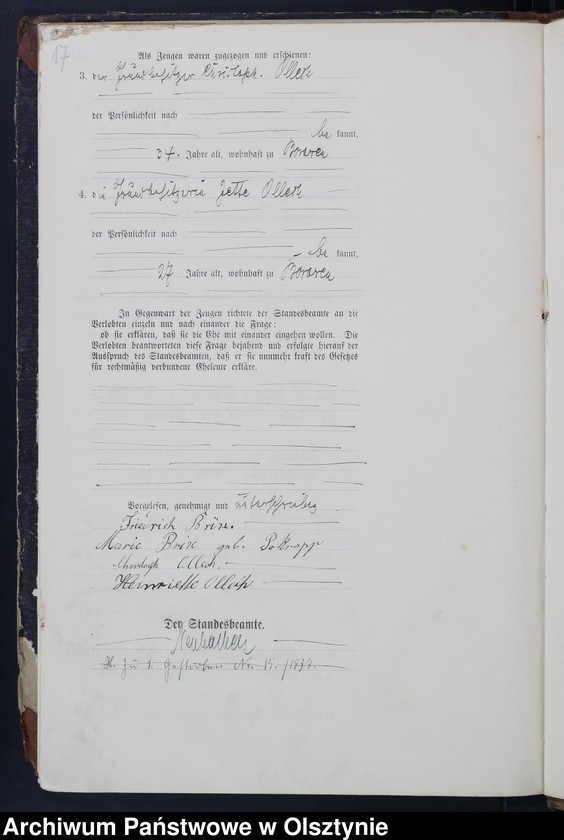 17
Als Zeugen waren zugezogen und erschienen:
3. der Grundbesitzer Christoph Olleck
der Persönlichkeit nach
be kannt,
34. Jahre alt, wohnhaft zu
4. die Grundbesitzerin Jette Olleck
der Persönlichkeit nach
be kannt,
27 Jahre alt, wohnhaft zu
In Gegenwart der Zeugen richtete der Standesbeamte an die
Verlobten einzeln und nach einander die Frage:
ob sie erklären, daß sie die Ehe mit einander eingehen wollen. Die
Verlobten beantworteten diese Frage bejahend und erfolgte hierauf der
Ausspruch des Standesbeamten, daß er sie nunmehr kraft des Gesetzes
für rechtmäßig verbundene Eheleute erkläre.
Vorgelesen, genehmigt und unterschrieben
Friedrich Brix.
Marie Brix geb. Pokrapp
Christoph Olleck.
Heinriette Olleck
Der Standesbeamte.
H. Zu 1. Gestorben Nr. 15./1937.
Archiwum Państwowe w Olsztynie